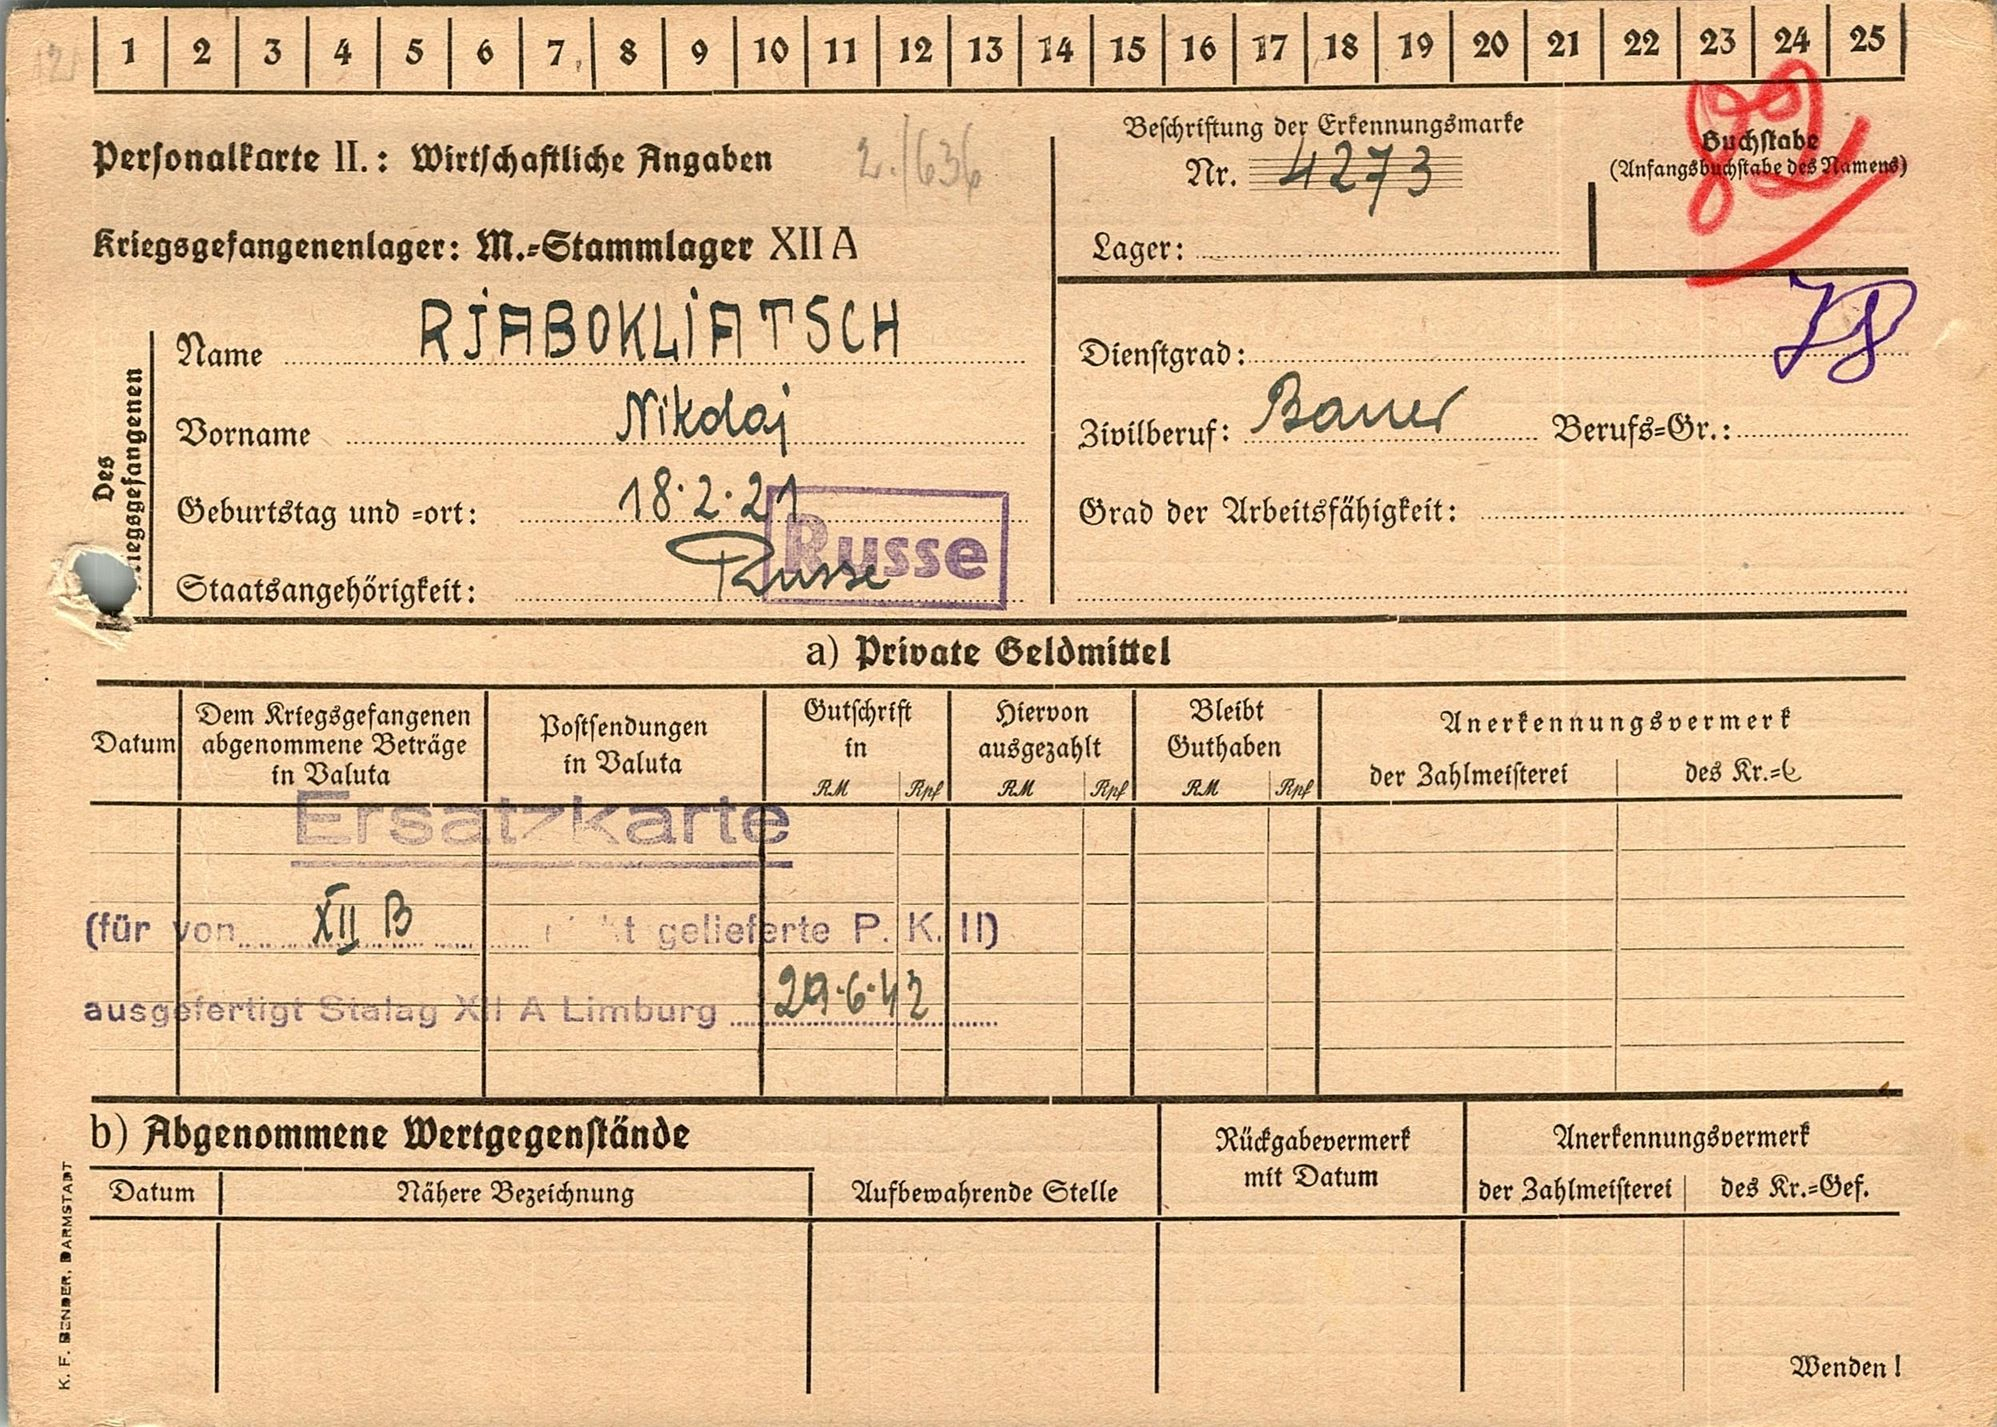 1 2 3 4 5 6 7 8 9 10 11 12 13 14 15 16 17 18 19 20 21 22 23 24 25
Personalkarte II.: Wirtschaftliche Angaben
2./636
Beschriftung der Erkennungsmarke
Nr. 4273
Lager:
Buchstabe
(Anfangsbuchstabe des Namens)
Kriegsgefangenenlager: M.-Stammlager XII A
Des
Kriegsgefangenen
Name RJABOKLIATSCH
Vorname Nikolaj
Geburtstag und =ort: 18.2.21
Staatsangehörigkeit: Russe
Russe
Dienstgrad:
Zivilberuf: Bauer Berufs=Gr.:
Grad der Arbeitsfähigkeit:
a) Private Geldmittel
Datum
Dem Kriegsgefangenen
abgenommene Beträge
in Valuta
Postsendungen
in Valuta
Gutschrift
in
RM Rpf
Hiervon
ausgezahlt
RM Rpf
Bleibt
Guthaben
RM Rpf
Anerkennungsvermerk
der Zahlmeisterei des Kr.=G
Ersatzkarte
(für von XII B gelieferte P. K. II)
ausgefertigt Stalag XII A Limburg 29.6.42
b) Abgenommene Wertgegenstände
Datum Nähere Bezeichnung Aufbewahrende Stelle
Rückgabevermerk
mit Datum
Anerkennungsvermerk
der Zahlmeisterei des Kr.=Gef.
K. F. BENDER, DARMSTADT
Wenden!